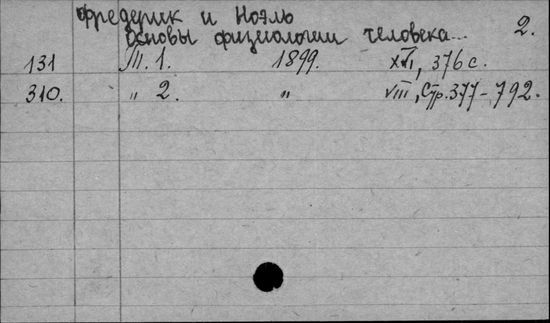 Фредерик и Ноэль
Основы физиологии человека... 2.
131 Т. 1. 1899. XVI, 376 с.
310. " 2. " VIII, Стр. 377-792.